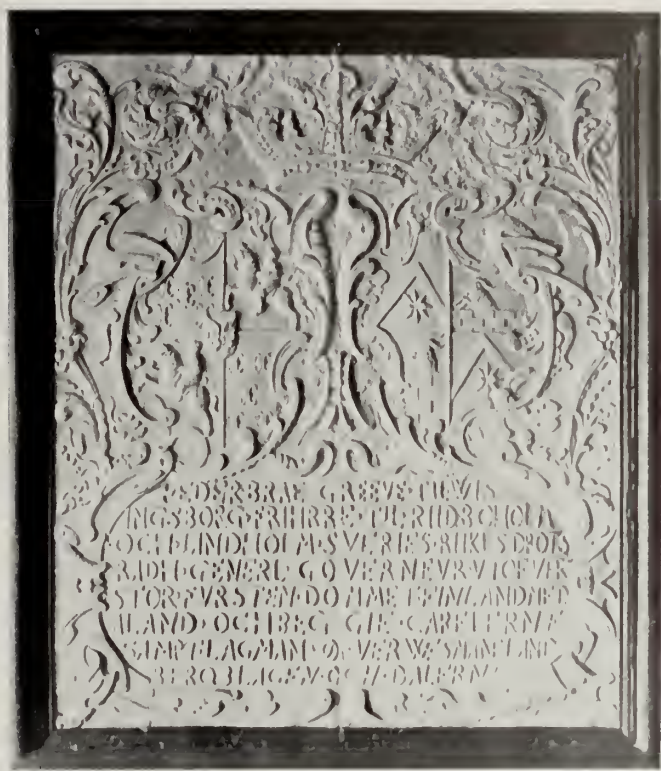 PEDER BRAE GREEVE TIL WIS
INGSBORG FRIHRRE TIL RIIDBOHOLM
OCH LINDHOLM·SVERIES·RIIKES DROTS
RADH·GENERL GOVERNEVR·VTÖFVER
STOR·FVRSTENDÖMMET FINLANDH
ALAND·OCH BEGGIE·CARELERNE
LAGMAN·ÖFVER WESMANLAND
BERGSLAGEN·OCH·DALERNE